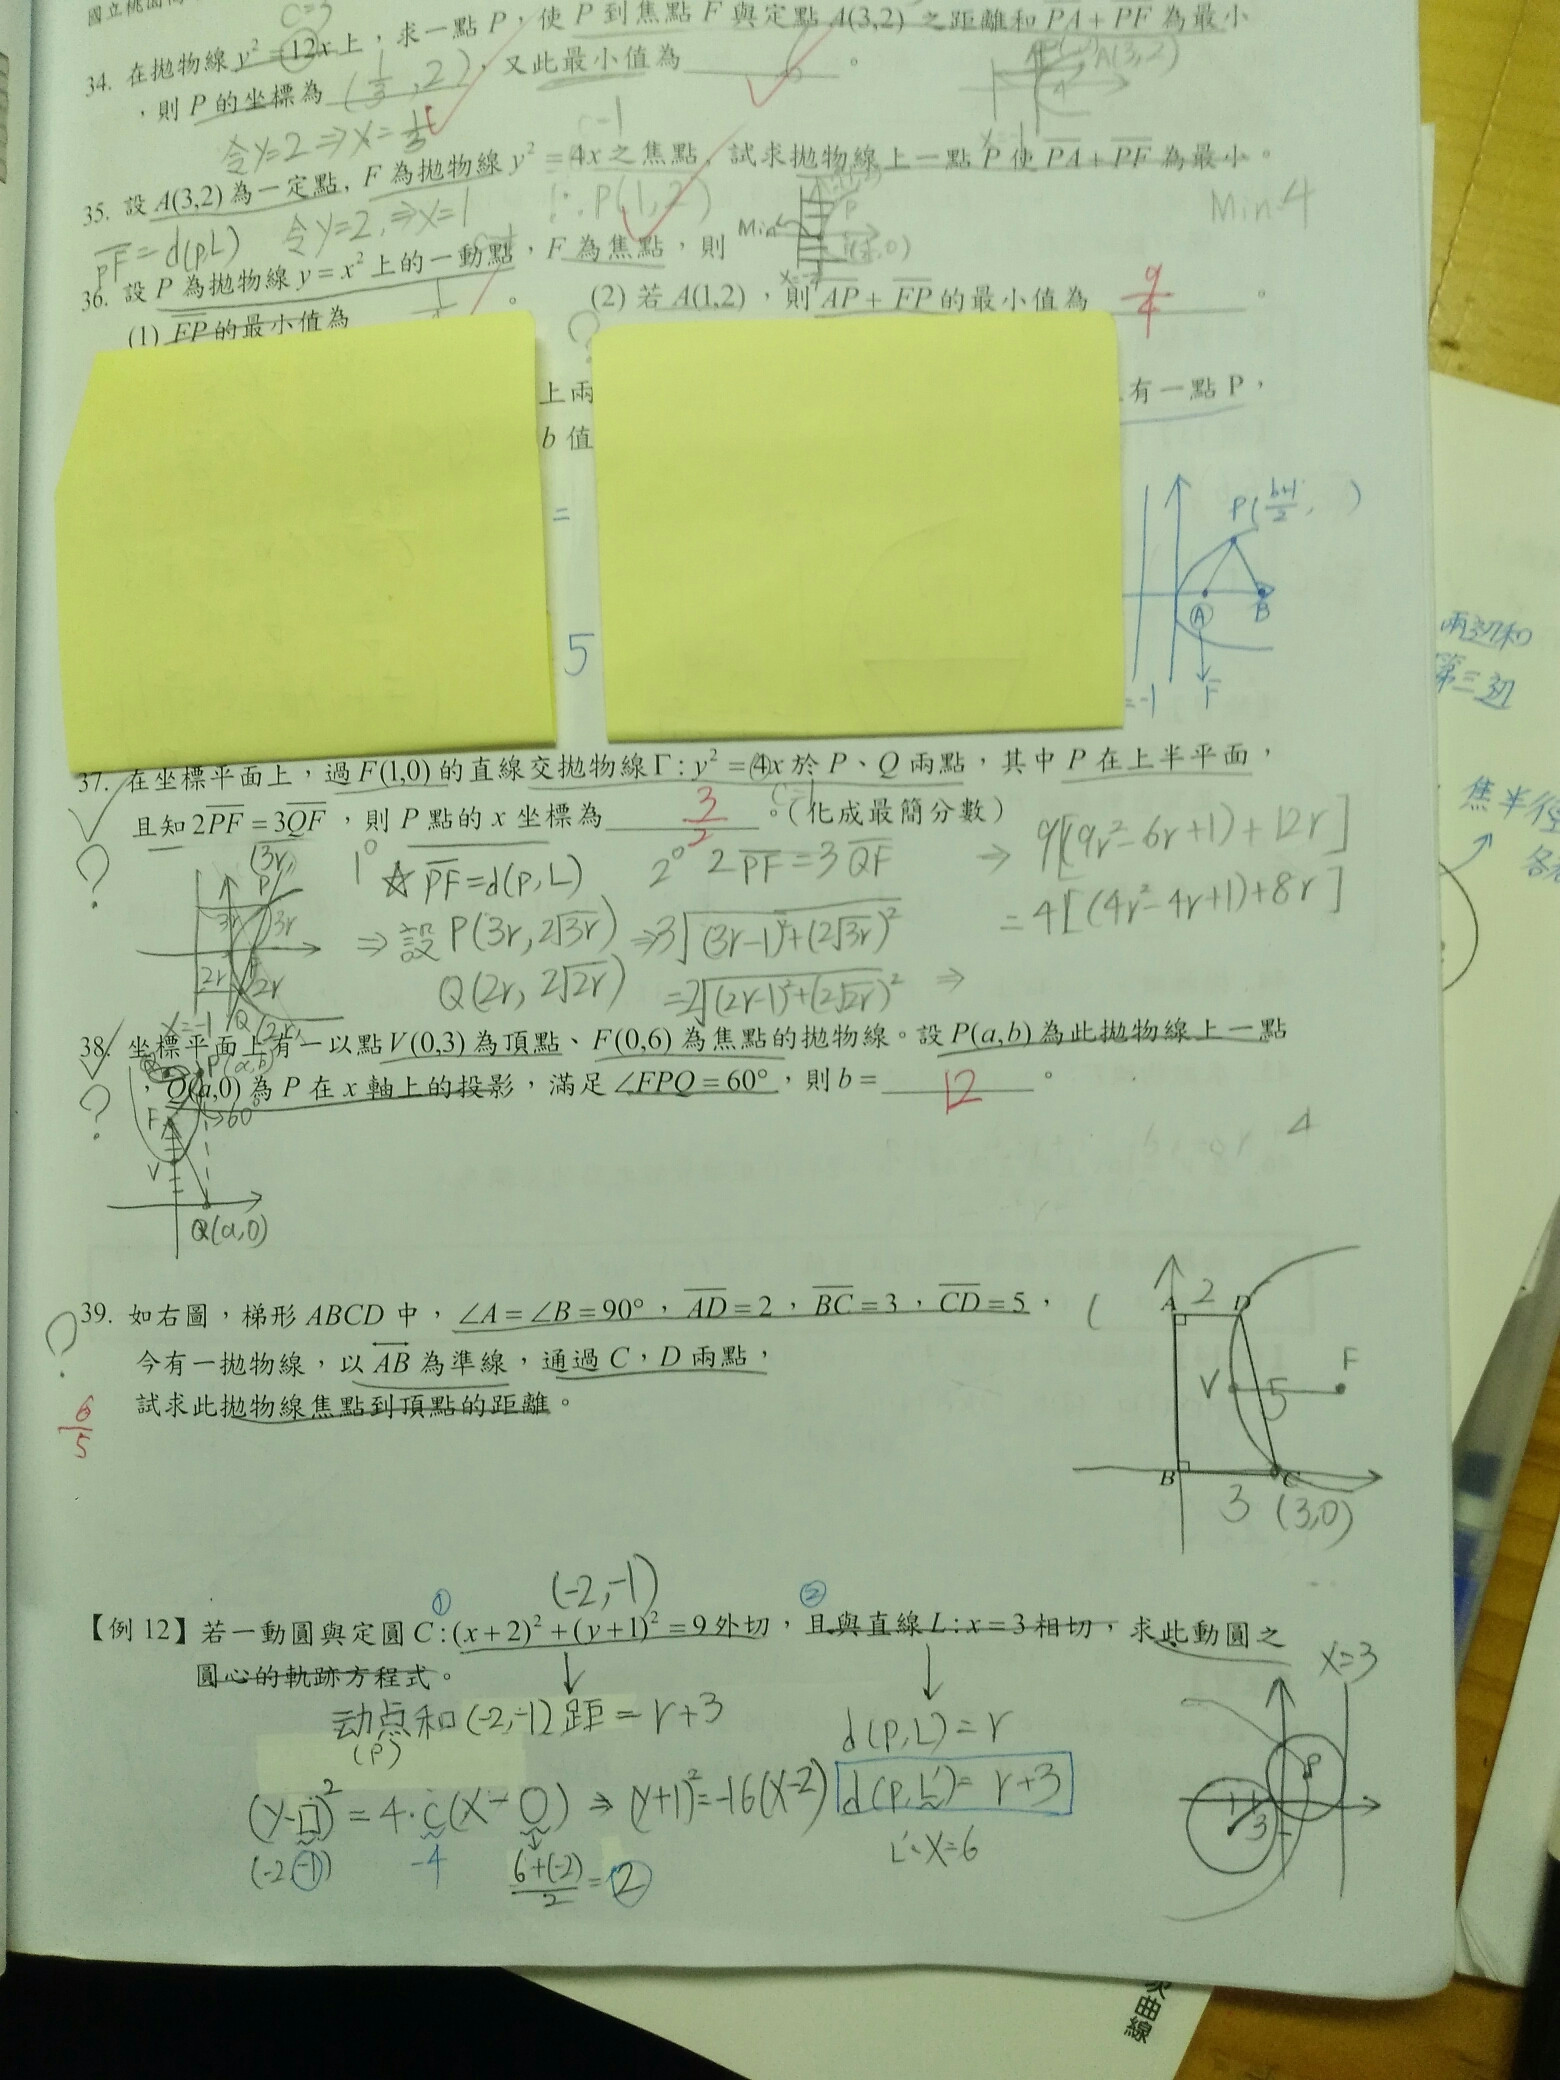 國立桃園高
c=3
34. 在拋物線 y² = 12x 上，求一點 P，使 P 到焦點 F 與定點 A(3,2) 之距離和 PA + PF 為最小
，則 P 的坐標為 (1/3, 2)，又此最小值為 6。
A(3,2)
令y=2 ⇒ x=1/3
c=1
35. 設 A(3,2) 為一定點, F 為拋物線 y² = 4x 之焦點, 試求拋物線上一點 P 使 PA + PF 為最小。
PF = d(p,L)
令y=2, ⇒ x=1
∴ P(1,2)
Min
Min=4
36. 設 P 為拋物線 y = x² 上的一動點，F 為焦點，則
(1) FP 的最小值為 1/4。 (2) 若 A(1,2)，則 AP + FP 的最小值為 9/4。
?
上兩
有一點 P，
b 值
=
5
P(b+1/2, )
A B
=-1 F
兩邊和
第三邊
焦半徑
37. 在坐標平面上，過 F(1,0) 的直線交拋物線 Γ: y² = 4x 於 P、Q 兩點，其中 P 在上半平面，
c=1
且知 2PF = 3QF，則 P 點的 x 坐標為 3/2。(化成最簡分數)
?
(3r,
P
3r 3r
2r 2r
x=-1 Q(2r,
1° ☆ PF = d(p,L)
⇒ 設 P(3r, 2√3r)
Q(2r, 2√2r)
2° 2PF = 3QF
⇒ 3√(3r-1)²+(2√3r)²
=2√(2r-1)²+(2√2r)² ⇒
⇒ 9[(9r²-6r+1)+12r]
=4[(4r²-4r+1)+8r]
38. 坐標平面上有一以點 V(0,3) 為頂點、F(0,6) 為焦點的拋物線。設 P(a,b) 為此拋物線上一點
，Q(a,0) 為 P 在 x 軸上的投影，滿足 ∠FPQ = 60°，則 b = 12。
?
P(a,b)
F 60°
V
Q(a,0)
4
39. 如右圖，梯形 ABCD 中，∠A = ∠B = 90°，AD = 2，BC = 3，CD = 5，
今有一拋物線，以 AB 為準線，通過 C，D 兩點，
試求此拋物線焦點到頂點的距離。
?
6/5
A 2 D
V 5 F
B C
3 (3,0)
(-2,-1)
① ②
【例 12】若一動圓與定圓 C:(x+2)² + (y+1)² = 9 外切，且與直線 L: x = 3 相切，求此動圓之
圓心的軌跡方程式。
动点和(-2,-1)距 = r+3
(P)
d(P,L) = r
d(P,L') = r+3
L': x=6
(y-□)² = 4·c(x-○) ⇒ (y+1)² = -16(x-2)
(-2,-1) -4 6+(-2)/2 = 2
x=3
P
3
次曲線